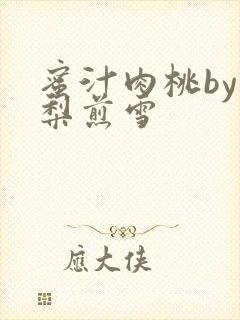 蜜汁肉桃by
梨煎雪
應大俠